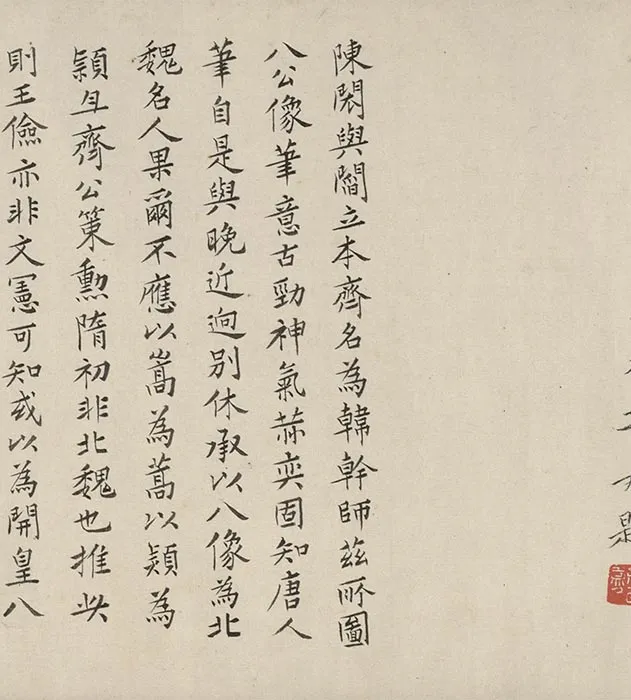 陳閎與閻立本齊名為韓幹師茲所圖
八公像筆意古勁神氣赫奕固知唐人
筆自是與晚近逈別休承以八像為北
魏名人果爾不應以嵩為蒿以熲為
潁且齊公策勲隋初非北魏也推此
則王儉亦非文憲可知或以為開皇八